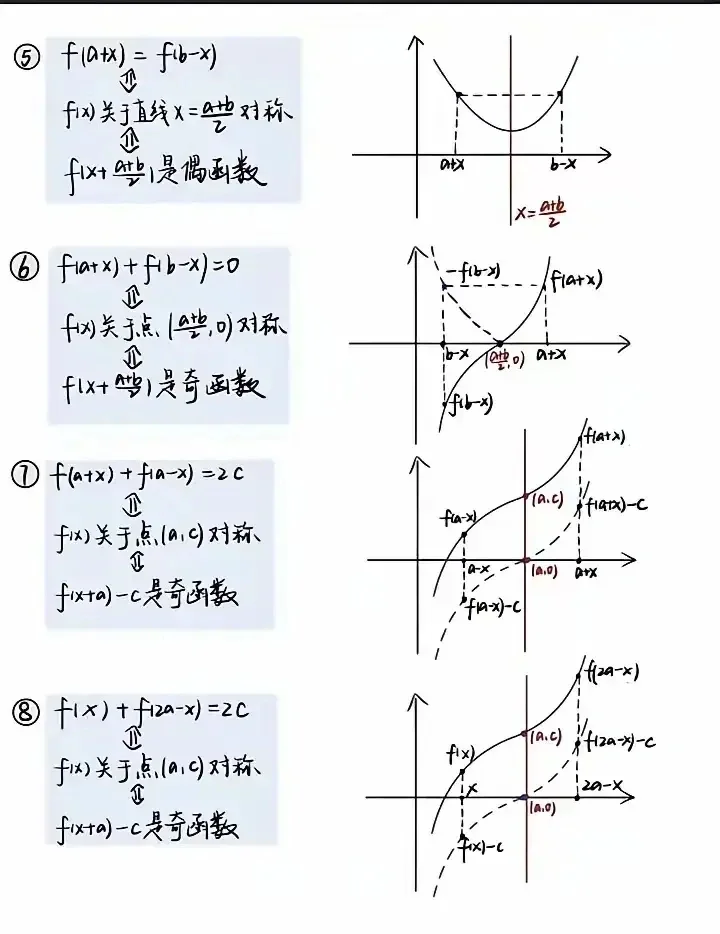 ⑤ f(a+x) = f(b-x)
⇕
f(x)关于直线x=\frac{a+b}{2}对称
⇕
f(x+\frac{a+b}{2})是偶函数
a+x
b-x
x=\frac{a+b}{2}
⑥ f(a+x)+f(b-x)=0
⇕
f(x)关于点(\frac{a+b}{2},0)对称
⇕
f(x+\frac{a+b}{2})是奇函数
-f(b-x)
f(a+x)
b-x
(\frac{a+b}{2},0)
a+x
f(b-x)
⑦ f(a+x)+f(a-x)=2C
⇕
f(x)关于点(a,c)对称
⇕
f(x+a)-C是奇函数
f(a+x)
(a,c)
f(a+x)-C
f(a-x)
a-x
(a,0)
a+x
f(a-x)-C
⑧ f(x)+f(2a-x)=2C
⇕
f(x)关于点(a,c)对称
⇕
f(x+a)-C是奇函数
f(2a-x)
(a,c)
f(2a-x)-C
f(x)
x
2a-x
(a,0)
f(x)-C